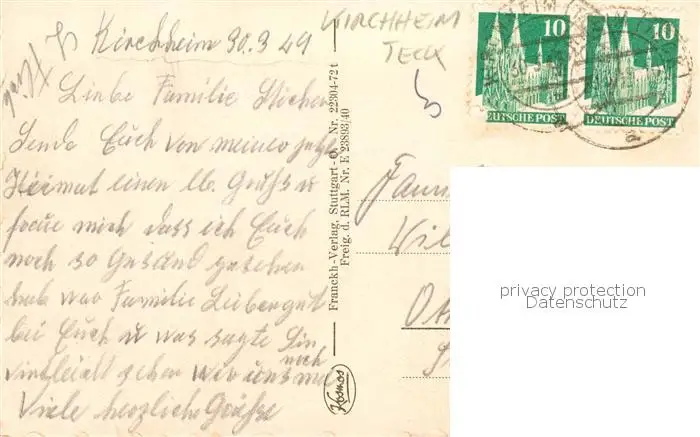 Kirchheim 30.3.49
KIRCHHEIM
TECK
Liebe Familie
Sende Euch von meiner
Heimat einen lb. Gruß u
freue mich dass ich Euch
noch so Gesund gesehen
hab war Familie Leibergut
bei Euch u was sagte Sie
vielleicht sehen wir uns noch mal
Viele herzliche Grüsse
Franckh-Verlag, Stuttgart-O. Nr. 22304-72 t
Freig. d. RLM. Nr. E 23893/40
Kosmos
10
DEUTSCHE POST
10
DEUTSCHE POST
Fam
Wil
privacy protection
Datenschutz